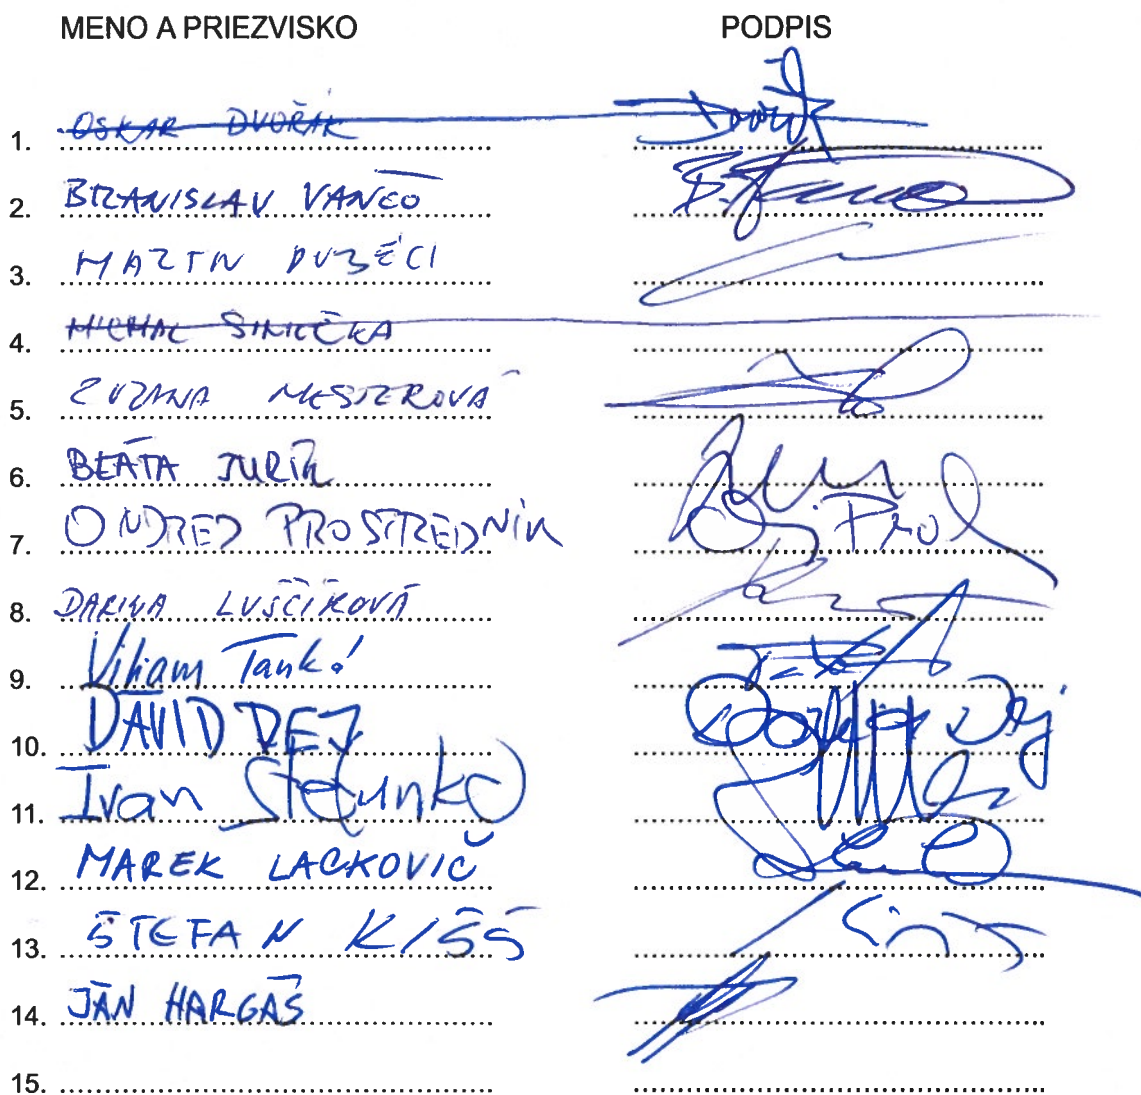 MENO A PRIEZVISKO PODPIS
1. OSKAR DVOŘÁK
2. BRANISLAV VANČO
3. MARTIN DUBÉCI
4. MICHAL ŠIMEČKA
5. ZUZANA MESTEROVÁ
6. BEÁTA JURÍK
7. ONDREJ PROSTREDNÍK
8. DARINA LUŠČÍKOVÁ
9. Viliam Tankó
10. DÁVID DEJ
11. Ivan Štefunko
12. MAREK LACKOVIČ
13. ŠTEFAN KIŠŠ
14. JÁN HARGAŠ
15.